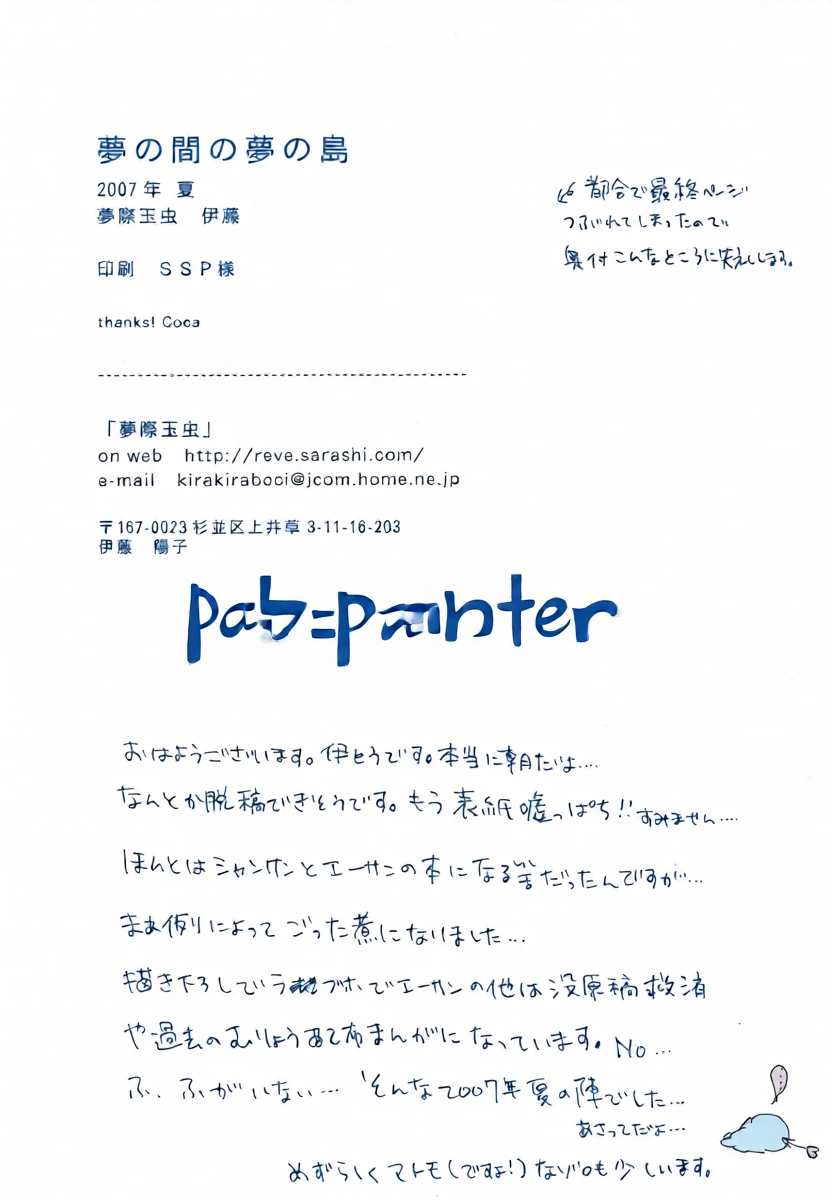 夢の間の夢の島
2007年 夏
夢際玉虫 伊藤
印刷 SSP様
thanks! Coca
都合で最終ページ
つぶれてしまったので
奥付こんなところに失礼します。
「夢際玉虫」
on web http://reve.sarashi.com/
e-mail kirakirabooi@jcom.home.ne.jp
〒167-0023 杉並区上井草 3-11-16-203
伊藤 陽子
おはようございます。伊とうです。本当に朝だよ....
なんとか脱稿できそうです。もう表紙嘘っぱち!! すみません....
ほんとはシャンサンとエーサンの本になる筈だったんですが...
まあ例によってごった煮になりました...
描き下ろしている エーサンの他は没原稿救済
や過去のむりょう まんがになっています。No...
ふ、ふがいない... そんな2007年夏の陣でした...
あさってだよ...
めずらしく (ですよ!) も少しいます。